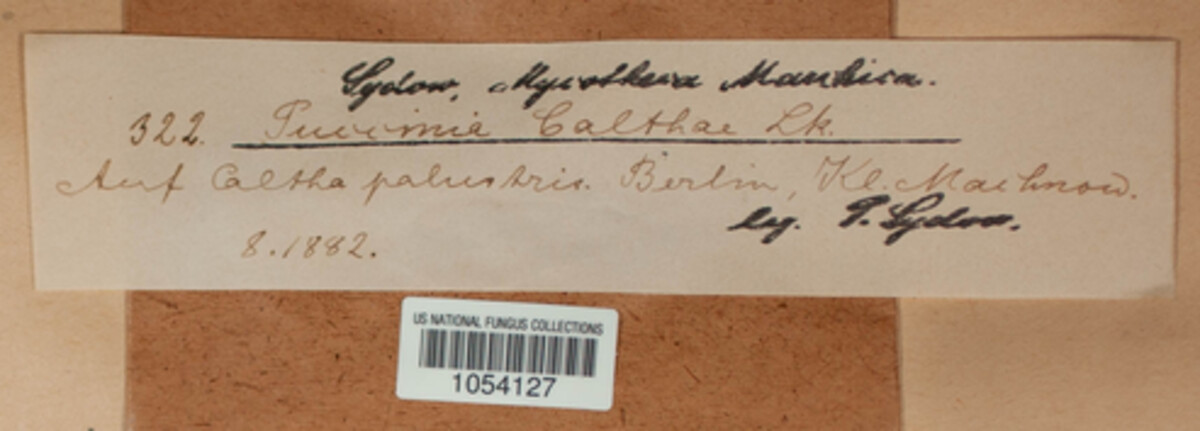 Sydow, Mycotheca Marchica.
322. Puccinia Calthae Lk.
Auf Caltha palustris. Berlin, Kl. Machnow.
leg. P. Sydow.
8.1882.
US NATIONAL FUNGUS COLLECTIONS
1054127